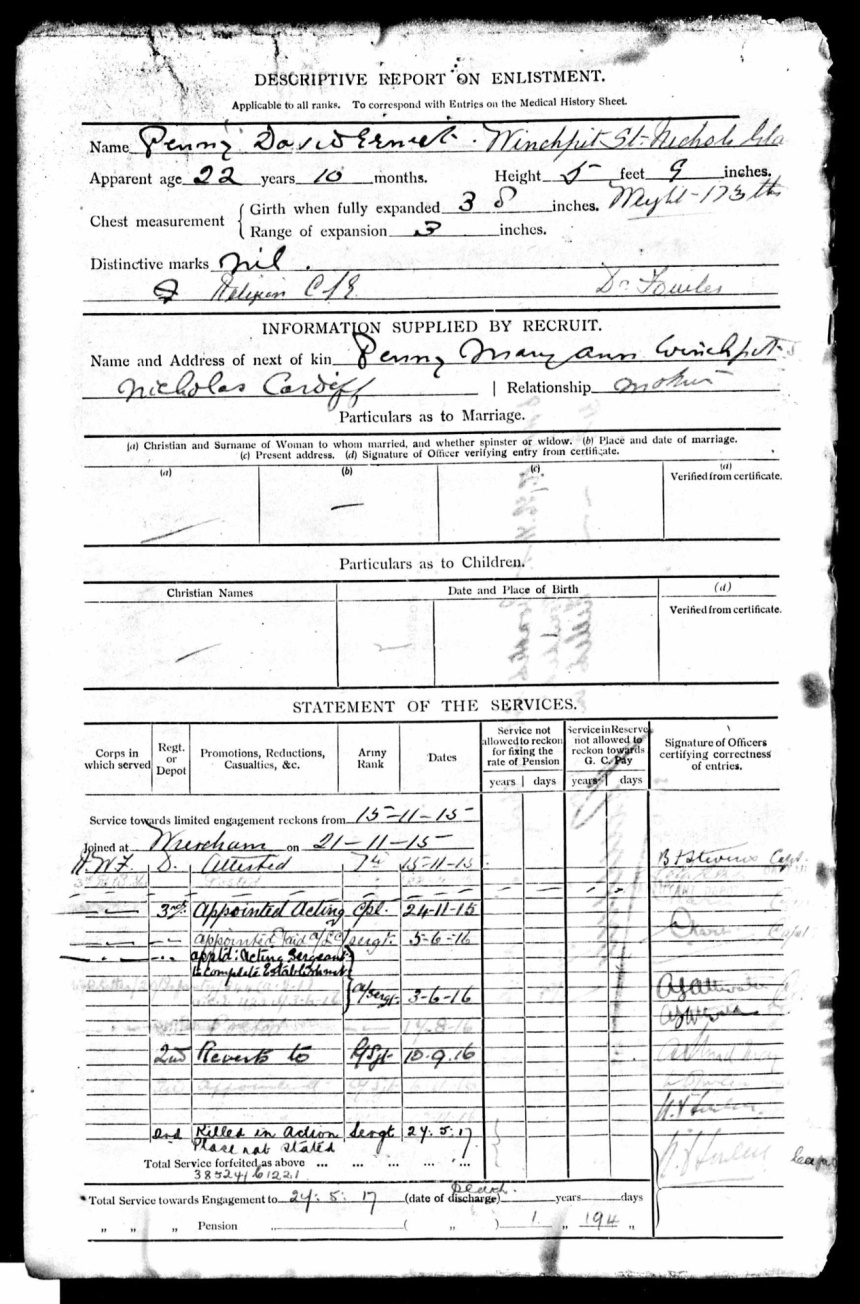 DESCRIPTIVE REPORT ON ENLISTMENT.
Applicable to all ranks. To correspond with Entries on the Medical History Sheet.
Name Penny David Ernest. Winchpit St. Nichols Gla
Apparent age 22 years 10 months. Height 5 feet 9 inches.
Chest measurement { Girth when fully expanded 38 inches. Weight - 173 lbs
Range of expansion 3 inches.
Distinctive marks nil.
Religion C of E. Dr. Fowler
INFORMATION SUPPLIED BY RECRUIT.
Name and Address of next of kin Penny Mary Ann Winchpit S
Nicholas Cardiff | Relationship mother
Particulars as to Marriage.
(a) Christian and Surname of Woman to whom married, and whether spinster or widow. (b) Place and date of marriage.
(c) Present address. (d) Signature of Officer verifying entry from certificate.
(a) (b) (c) (d)
Verified from certificate.
Particulars as to Children.
Christian Names Date and Place of Birth (d)
Verified from certificate.
STATEMENT OF THE SERVICES.
Corps in which served Regt. or Depot Promotions, Reductions, Casualties, &c. Army Rank Dates Service not allowed to reckon for fixing the rate of Pension Service in Reserve not allowed to reckon towards G. C. Pay Signature of Officers certifying correctness of entries.
years days years days
Service towards limited engagement reckons from 15-11-15
Joined at Wrexham on 21-11-15
R.W.F. D. Attested Pte 15-11-15 Capt.
3rd Appointed Acting Cpl. 24-11-15
appointed Paid Sergt. 5-6-16 Capt
app'd: Acting Sergeant
to complete Establishment
a/Sergt. 3-6-16
Posted 14-8-16
2nd Reverts to 10.9.16
2nd Killed in Action Sergt 27.5.17
Place not stated
Total Service forfeited as above ... ... ... ... ...
Capt
Total Service towards Engagement to 27.5.17 (date of discharge) Death. years days
" " " Pension ( " ) 1 " 194 "